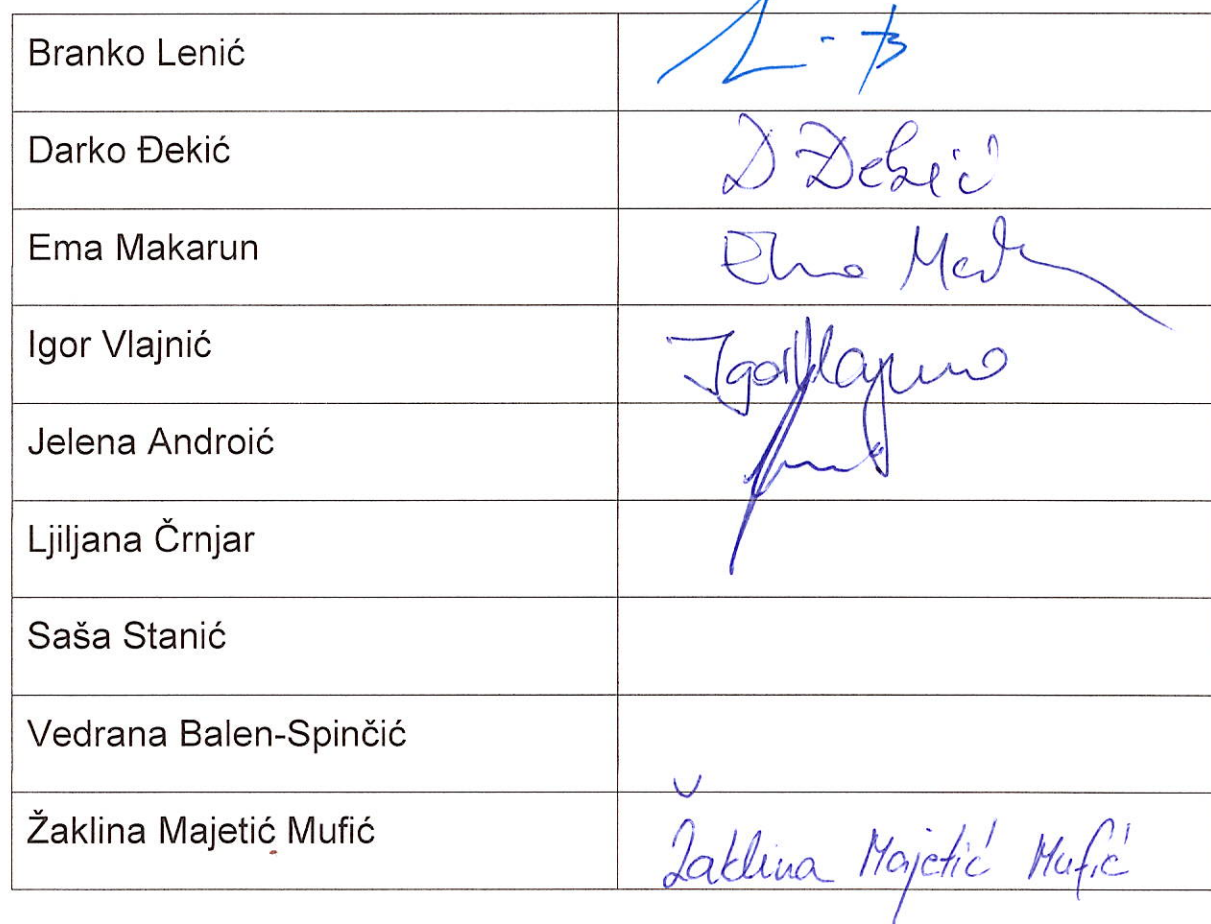 Branko Lenić
Darko Đekić D Đekić
Ema Makarun Ema
Igor Vlajnić Igor
Jelena Androić
Ljiljana Črnjar
Saša Stanić
Vedrana Balen-Spinčić
Žaklina Majetić Mufić Žaklina Majetić Mufić